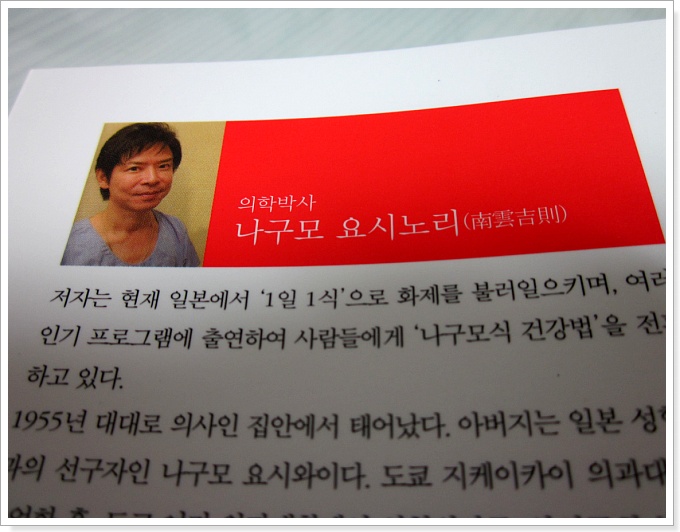 의학박사
나구모 요시노리(南雲吉則)
저자는 현재 일본에서 ‘1일 1식’으로 화제를 불러일으키며, 여러
인기 프로그램에 출연하여 사람들에게 ‘나구모식 건강법’을
하고 있다.
1955년 대대로 의사인 집안에서 태어났다. 아버지는 일본
선구자인 나구모 요시와이다. 도쿄 지케이카이